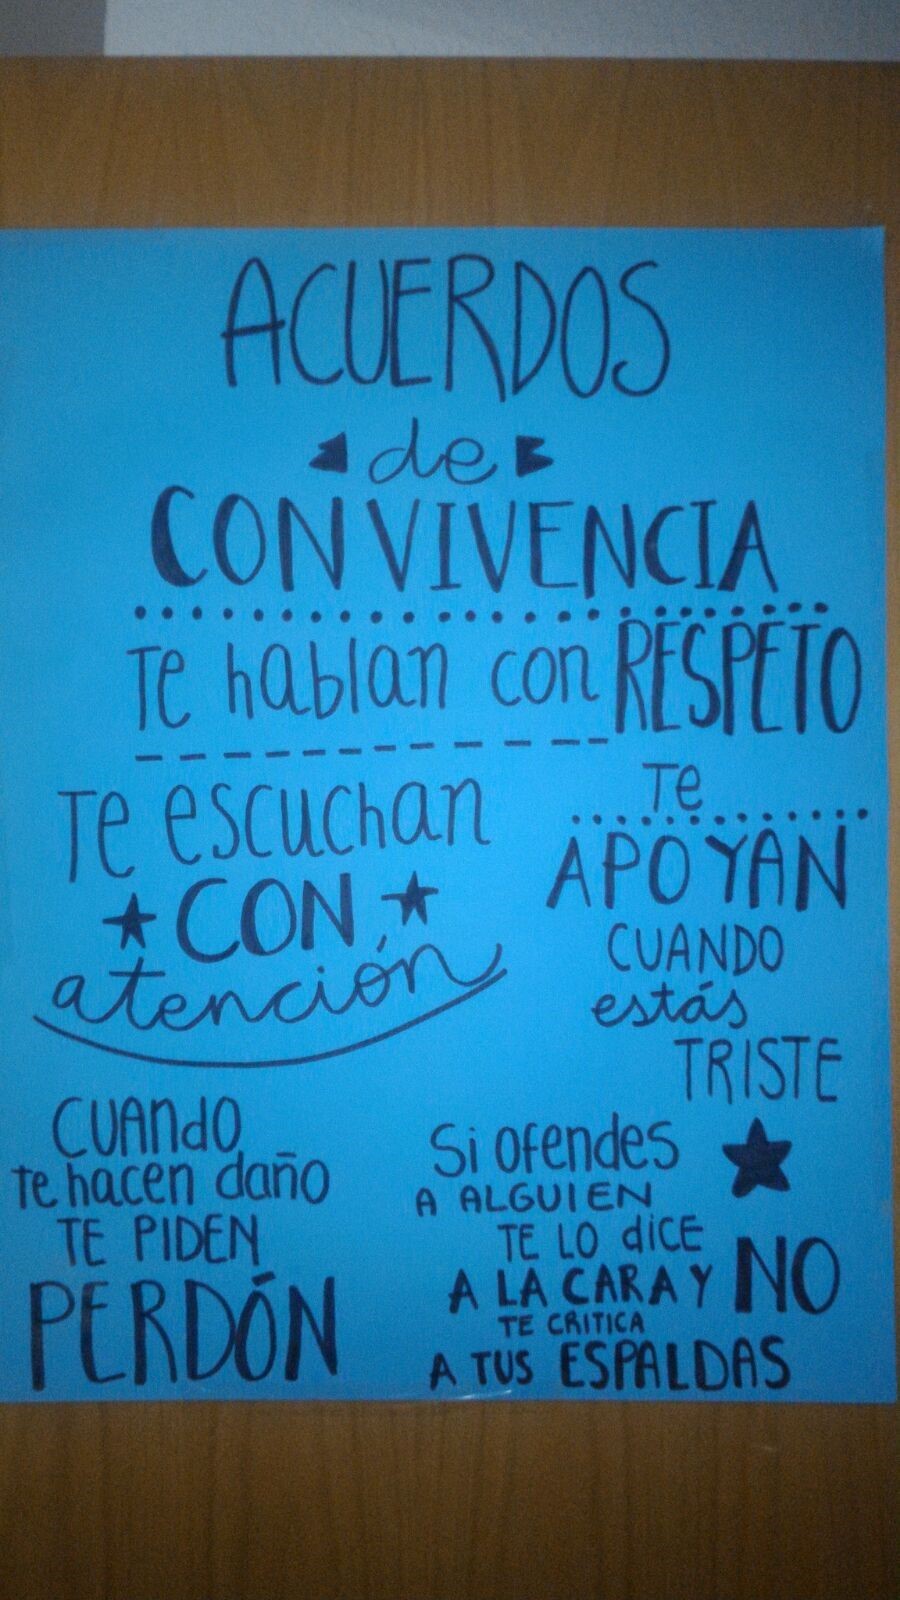 ACUERDOS
de
CONVIVENCIA
Te hablan con RESPETO
Te escuchan
CON
atención
Te
APOYAN
CUANDO
estás
TRISTE
CUANdO
Te hacen daño
TE PIDEN
PERDÓN
Si ofendes
A ALGUIEN
TE LO dICE
A LA CARA Y NO
TE CRITICA
A TUS ESPALDAS